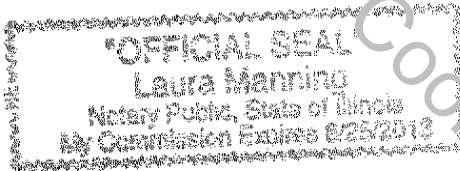 "OFFICIAL SEAL"
Laura Manning
Notary Public, State of Illinois
My Commission Expires 8/25/2013
Coo